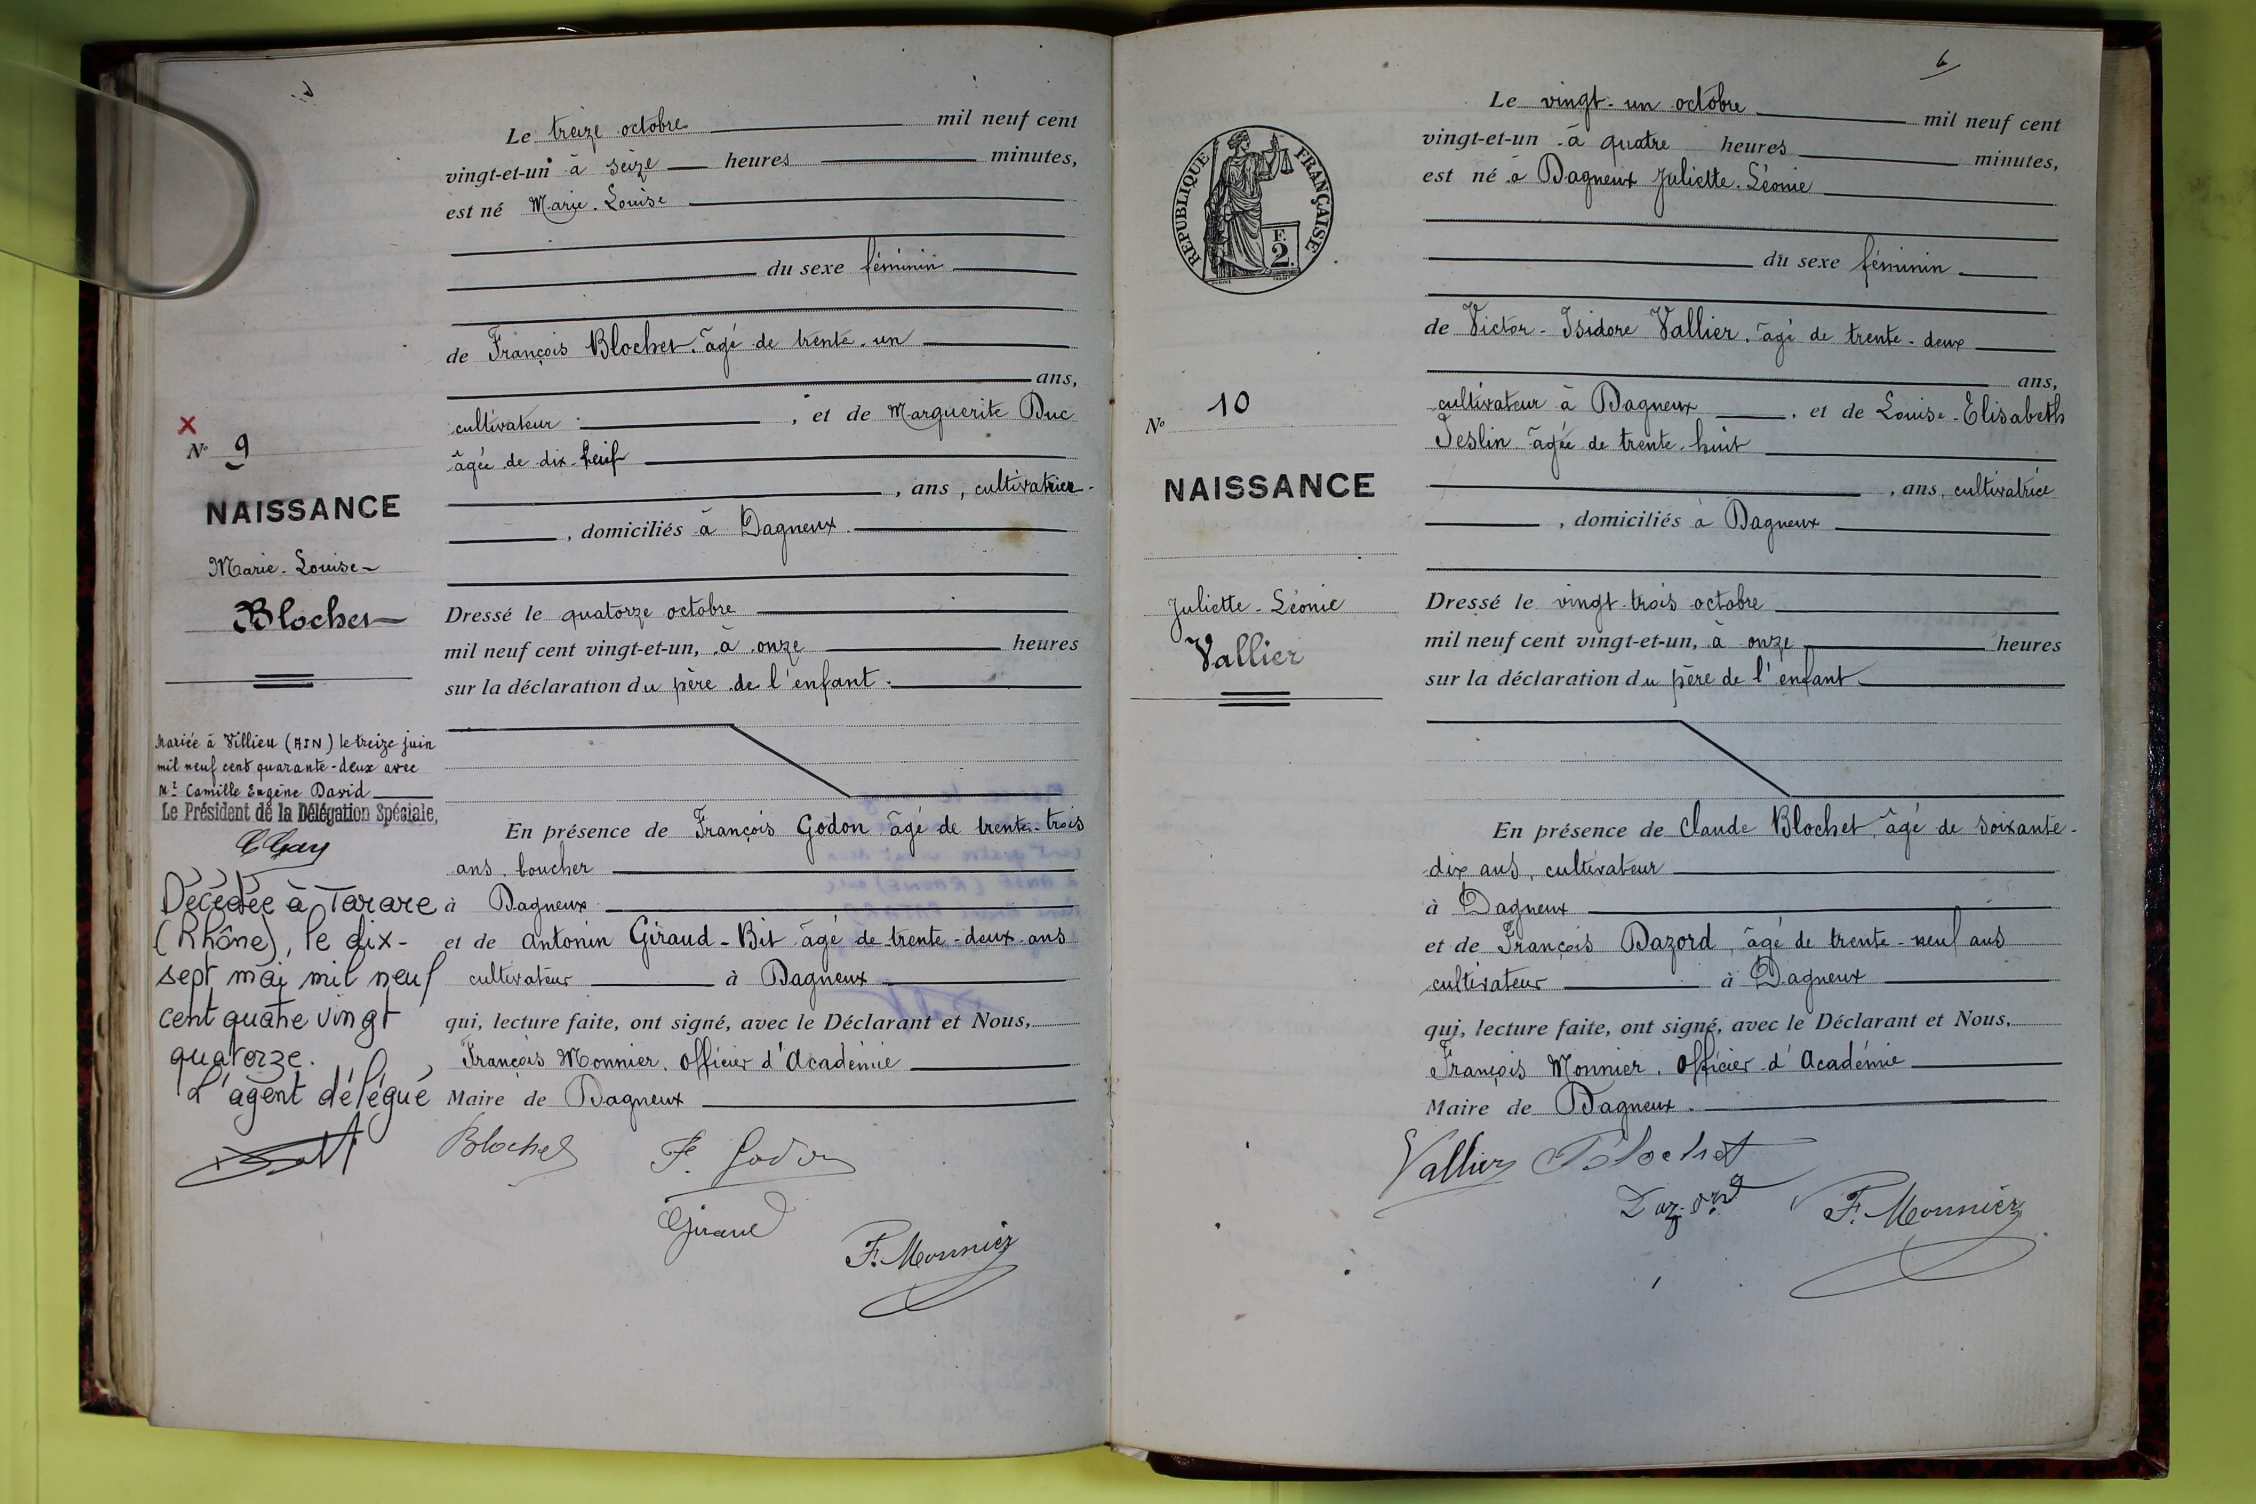 Le treize octobre mil neuf cent
vingt-et-un à seize heures minutes,
est né Marie-Louise
du sexe féminin
de François Blochet, âgé de trente-un
ans,
cultivateur, et de Marguerite Duc
âgée de dix-neuf
, ans, cultivatrice
, domiciliés à Dagneux
Dressé le quatorze octobre
mil neuf cent vingt-et-un, à onze heures
sur la déclaration du père de l'enfant.
En présence de François Godon âgé de trente-trois
ans, boucher
à Dagneux
et de antonin Giraud-Bit âgé de trente-deux ans
cultivateur à Dagneux
qui, lecture faite, ont signé, avec le Déclarant et Nous,
François Monnier, Officier d'Académie
Maire de Dagneux
Blochet F. Godon
Giraud
F. Monnier
X
N° 9
NAISSANCE
Marie-Louise
Blochet
Mariée à Villieu (AIN) le treize juin
mil neuf cent quarante-deux avec
Mr Camille Eugène David
Le Président de la Délégation Spéciale,
CGay
Décédée à Tarare
(Rhône), le dix-
sept mai mil neuf
cent quatre vingt
quatorze.
L'agent délégué
6
RÉPUBLIQUE FRANÇAISE
F.
2.
Le vingt-un octobre mil neuf cent
vingt-et-un à quatre heures minutes,
est né à Dagneux Juliette-Léonie
du sexe féminin
de Victor-Isidore Vallier, âgé de trente-deux
ans,
cultivateur à Dagneux, et de Louise-Elisabeth
Teslin âgée de trente-huit
, ans, cultivatrice
, domiciliés à Dagneux
Dressé le vingt-trois octobre
mil neuf cent vingt-et-un, à onze heures
sur la déclaration du père de l'enfant
En présence de Claude Blochet, âgé de soixante-
dix ans, cultivateur
à Dagneux
et de François Dazord, âgé de trente-neuf ans
cultivateur à Dagneux
qui, lecture faite, ont signé, avec le Déclarant et Nous,
François Monnier, Officier d'Académie
Maire de Dagneux.
Vallier Blochet
Dazord F. Monnier
N° 10
NAISSANCE
Juliette-Léonie
Vallier